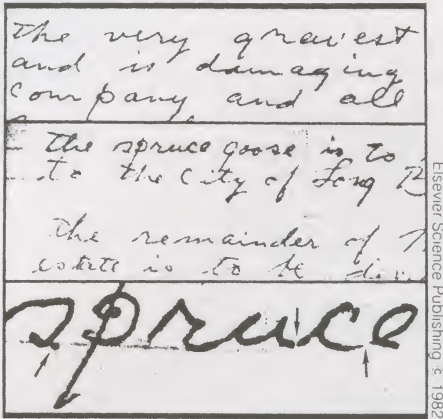 the very gravest
and is damaging
company and all
the spruce goose is to
to the City of Long B
the remainder of
estate is to be
spruce
Elsevier Science Publishing c 1982